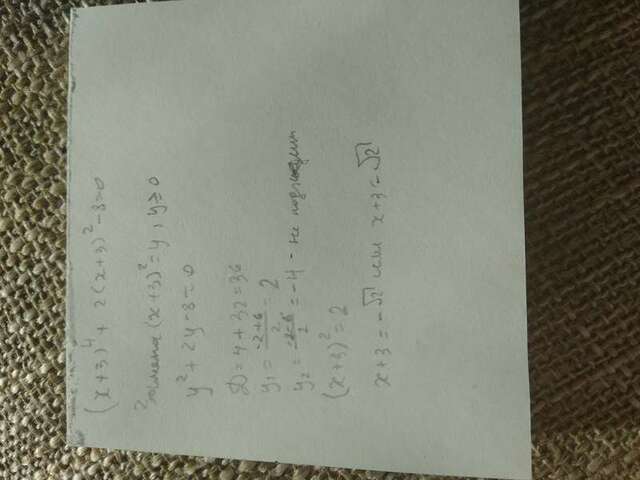 (x+3)⁴ + 2(x+3)² - 8=0
Замена (x+3)²=y, y≥0
y² + 2y - 8 = 0
D = 4 + 32 = 36
y₁ = (-2+6)/2 = 2
y₂ = (-2-6)/2 = -4 - не подходит
(x+3)² = 2
x+3 = -√2 или x+3 = √2